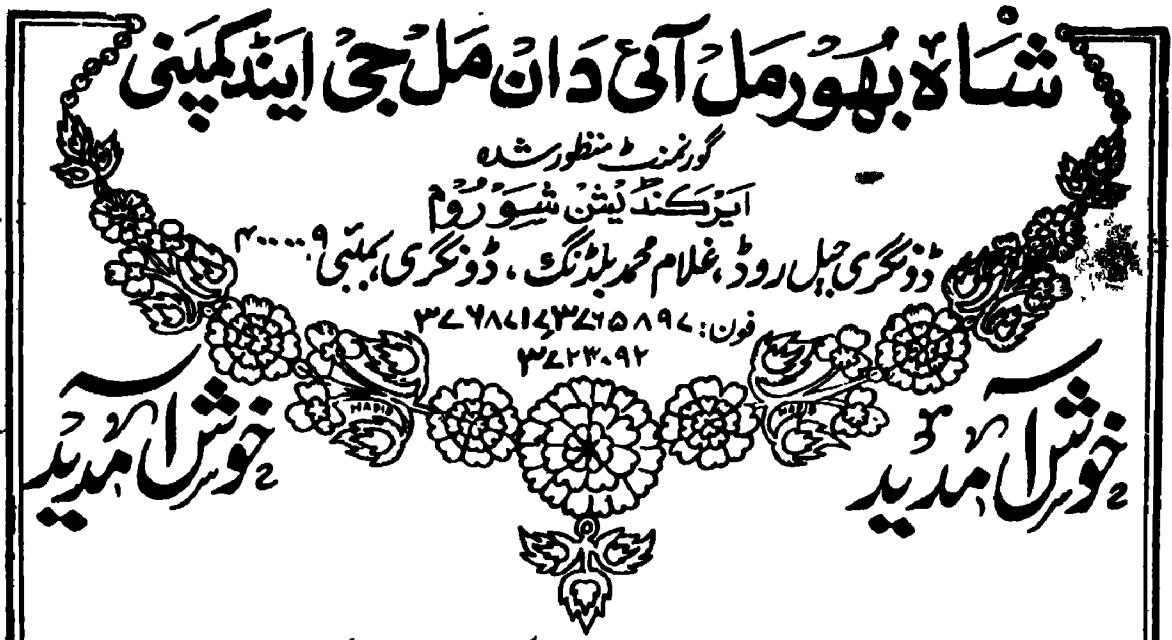 شاہ بھورمل آئی دان مل جی اینڈ کمپنی
گورنمنٹ منظور شدہ
ایرکنڈیشن شو روم
ڈونگری جیل روڈ، غلام محمد بلڈنگ، ڈونگری، بمبئی ۴۰۰۰۰۹
فون: ۳۷۶۵۸۹۷، ۳۷۶۸۷۱۷
۳۷۲۳۰۹۲
خوش آمدید
خوش آمدید